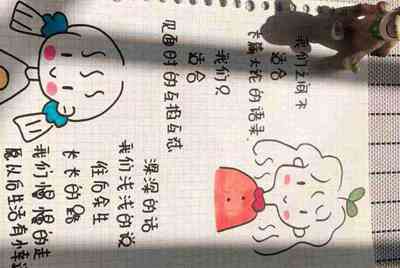 我们之间不
适合
长篇大论的语录
我们只
适合
见面时的互掐互怼
深深的话
我们浅浅的说
往后余生
长长的路
我们慢慢的走
愿以后生活有小幸